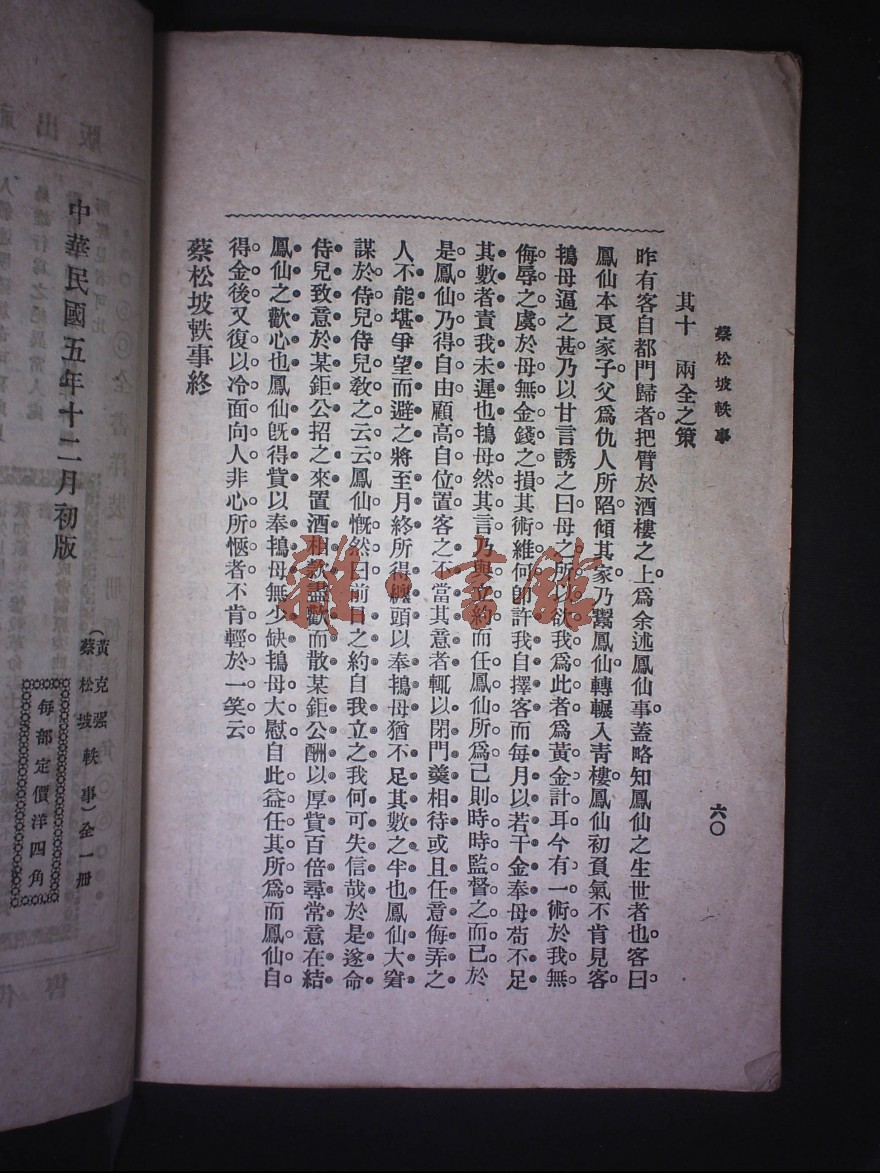 蔡松坡軼事
六〇
其十　兩全之策
昨有客自都門歸者把臂於酒樓之上爲余述鳳仙事蓋略知鳳仙之生世者也客曰
鳳仙本良家子父爲仇人所陷傾其家乃鬻鳳仙轉輾入靑樓鳳仙初頁氣不肯見客
鴇母逼之甚乃以甘言誘之曰母之所以欲我爲此者爲黃金計耳今有一術於我無
侮辱之虞於母無金錢之損其術維何卽許我自擇客而每月以若干金奉母苟不足
其數者責我未遲也鴇母然其言乃與立約而任鳳仙所爲己則時時監督之而已於
是鳳仙乃得自由顧高自位置客之不當其意者輒以閉門羹相待或且任意侮弄之
人不能堪爭望而避之將至月終所得纏頭以奉鴇母猶不足其數之半也鳳仙大窘
謀於侍兒侍兒敎之云云鳳仙慨然曰前日之約自我立之我何可失信哉於是遂命
侍兒致意於某鉅公招之來置酒相款盡歡而散某鉅公酬以厚貲百倍尋常意在結
鳳仙之歡心也鳳仙旣得貲以奉鴇母無少缺鴇母大慰自此益任其所爲而鳳仙自
得金後又復以冷面向人非心所愜者不肯輕於一笑云
蔡松坡軼事終
雜·書館
中華民國五年十二月初版
（黃克强
蔡松坡軼事）全一册
每部定價洋四角